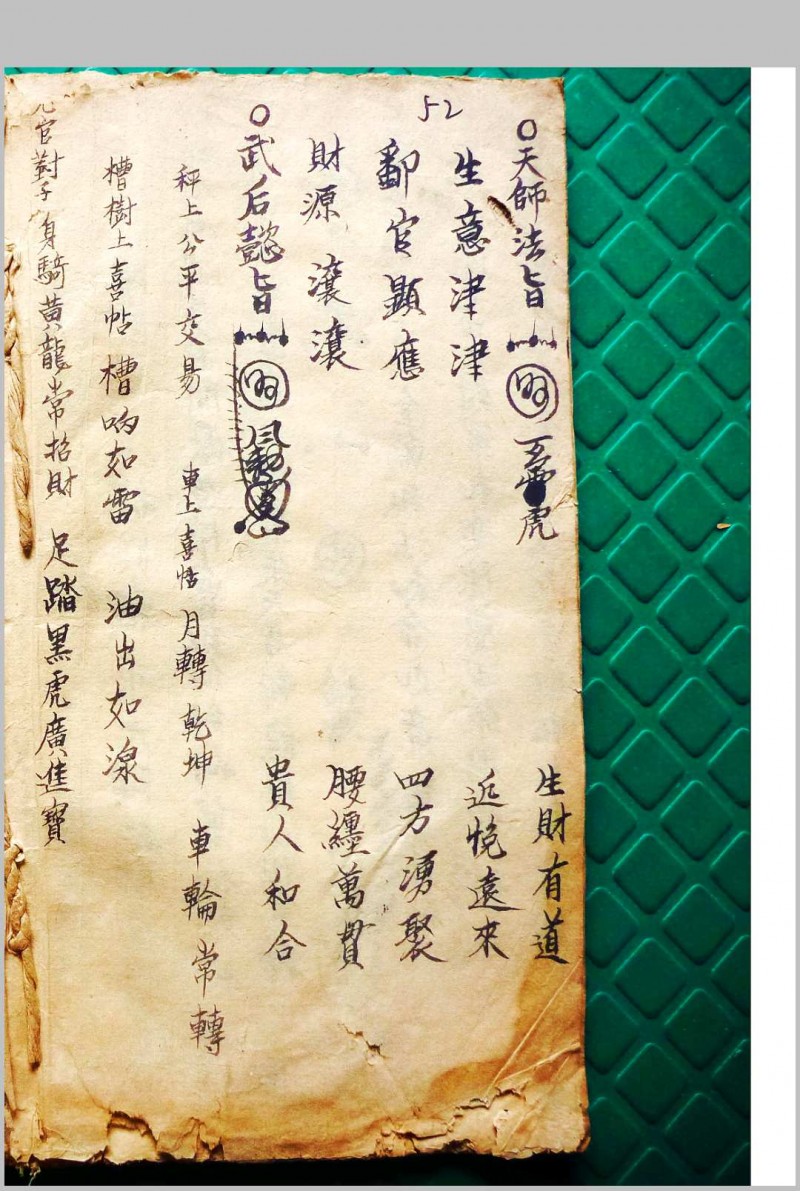 52
○天師法旨 虎
生財有道
生意津津
近悅遠來
鄱官顯應
四方湧聚
財源滾滾
腰纏萬貫
○武后懿旨
貴人和合
秤上公平交易
車上喜帖 月轉乾坤 車輪常轉
槽樹上喜帖 槽响如雷 油出如湶
官對子 身騎黃龍常招財 足踏黑虎廣進寶